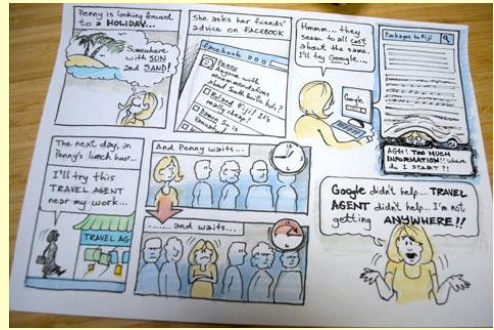 Penny is looking forward
to a HOLIDAY...
Somewhere
with SUN
and SAND!
She asks her friends'
advice on FACEBOOK
facebook
Penny
Anyone with
recommendations
about South
Fiji! It's
really cheap!
Hmmm... they
seem to all cost
about the same.
I'll try Google...
Google
Packages to Fiji
AGH! TOO MUCH
INFORMATION!! Where
do I START?!
The next day, in
Penny's lunch hour...
I'll try this
TRAVEL AGENT
near my work...
TRAVEL AG
And Penny waits...
....... and waits...
Google didn't help... TRAVEL
AGENT didn't help... I'm not
getting ANYWHERE!!